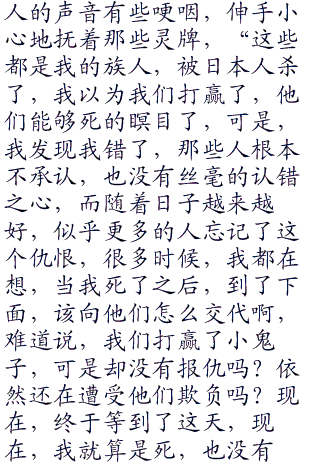 人的声音有些哽咽，伸手小
心地抚着那些灵牌，“这些
都是我的族人，被日本人杀
了，我以为我们打赢了，他
们能够死的瞑目了，可是，
我发现我错了，那些人根本
不承认，也没有丝毫的认错
之心，而随着日子越来越
好，似乎更多的人忘记了这
个仇恨，很多时候，我都在
想，当我死了之后，到了下
面，该向他们怎么交代啊，
难道说，我们打赢了小鬼
子，可是却没有报仇吗？依
然还在遭受他们欺负吗？现
在，终于等到了这天，现
在，我就算是死，也没有